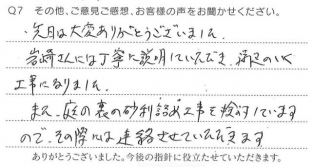 Q7 その他、ご意見ご感想、お客様の声をお聞かせください。
・先日は大変ありがとうございました。
岩崎さんには丁寧に説明していただき、満足のいく
工事になりました。
また、庭の裏の砂利詰め工事を検討しています
ので、その際には連絡させていただきます
ありがとうございました。今後の指針に役立たせていただきます。